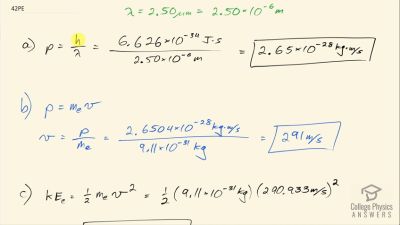 42PE
λ = 2.50 μm = 2.50 × 10⁻⁶ m
a) p = h/λ = 6.626×10⁻³⁴ J·s / 2.50 × 10⁻⁶ m = 2.65×10⁻²⁸ kg·m/s
b) p = mₑ v
v = p/mₑ = 2.6504×10⁻²⁸ kg·m/s / 9.11×10⁻³¹ kg = 291 m/s
c) KEₑ = ½ mₑ v² = ½ (9.11×10⁻³¹ kg)(290.933 m/s)²
College Physics
ANSWERS